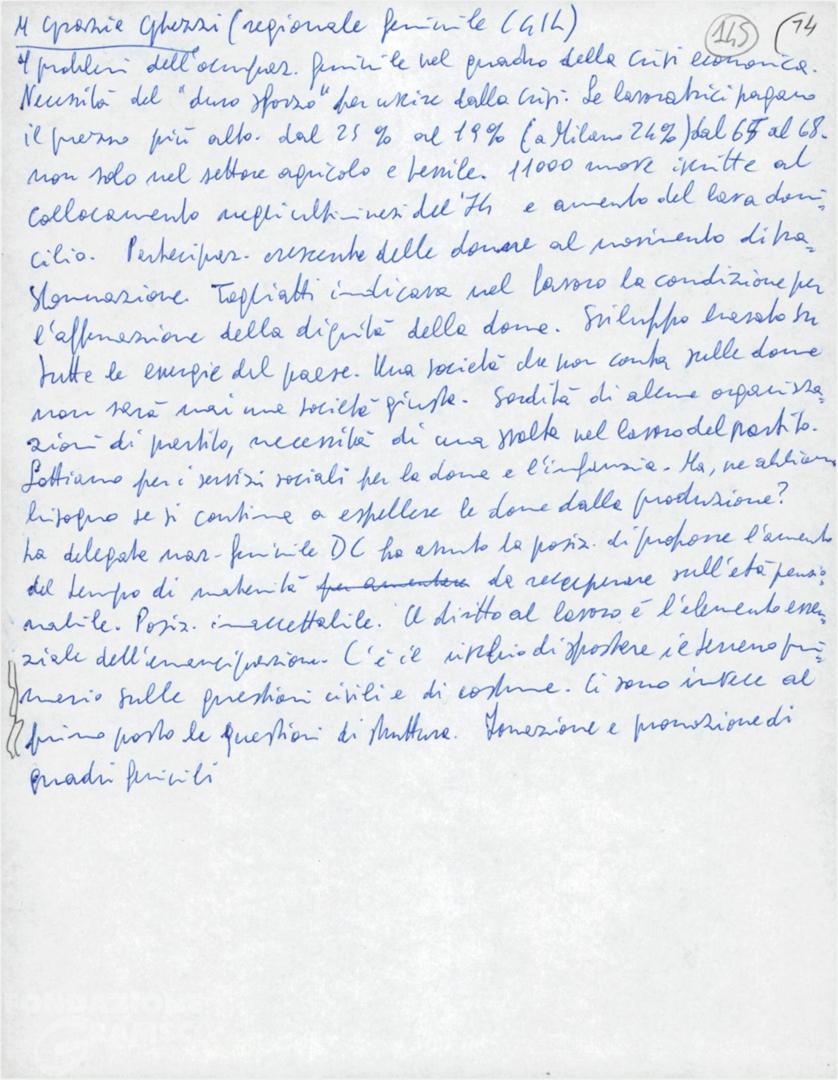 M Grazia Ghezzi (regionale femminile (414) 145 (74
I problemi dell'occupaz. femminile nel quadro della crisi economica.
Necessità del "duro sforzo" per uscire dalla crisi. Le lavoratrici pagano
il prezzo più alto. dal 25 % al 19% (a Milano 24%) dal 65 al 68.
non solo nel settore agricolo e tessile. 11000 nuove iscritte al
collocamento negli ultimi mesi del '74 e aumento del lavoro a domi=
cilio. Partecipaz. crescente delle donne al movimento di tra=
sformazione. Togliatti indicava nel lavoro la condizione per
l'affermazione della dignità della donna. Sviluppo basato su
tutte le energie del paese. Una società che non conta sulle donne
non sarà mai una società giusta. Sordità di alcune organizza=
zioni di partito, necessità di una svolta nel lavoro del partito.
Lottiamo per i servizi sociali per la donna e l'infanzia. Ma, ne abbiamo
bisogno se si continua a espellere le donne dalla produzione?
La delegata naz. femminile DC ha assunto la posiz. di proporre l'aumento
del tempo di maternità per aumentare da recuperare sull'età pensio=
nabile. Posiz. inaccettabile. Il diritto al lavoro è l'elemento essen=
ziale dell'emancipazione. C'è il rischio di spostare il terreno pri=
mario sulle questioni civili e di costume. Ci sono invece al
primo posto le questioni di struttura. Formazione e promozione di
quadri femminili
FONDAZIONE
GRAMSCI